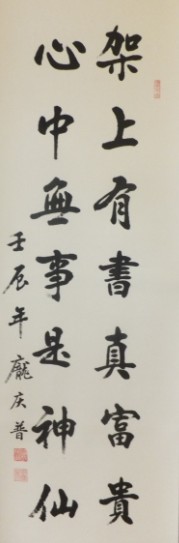 架上有書真富貴
心中無事是神仙
壬辰年龐庆普